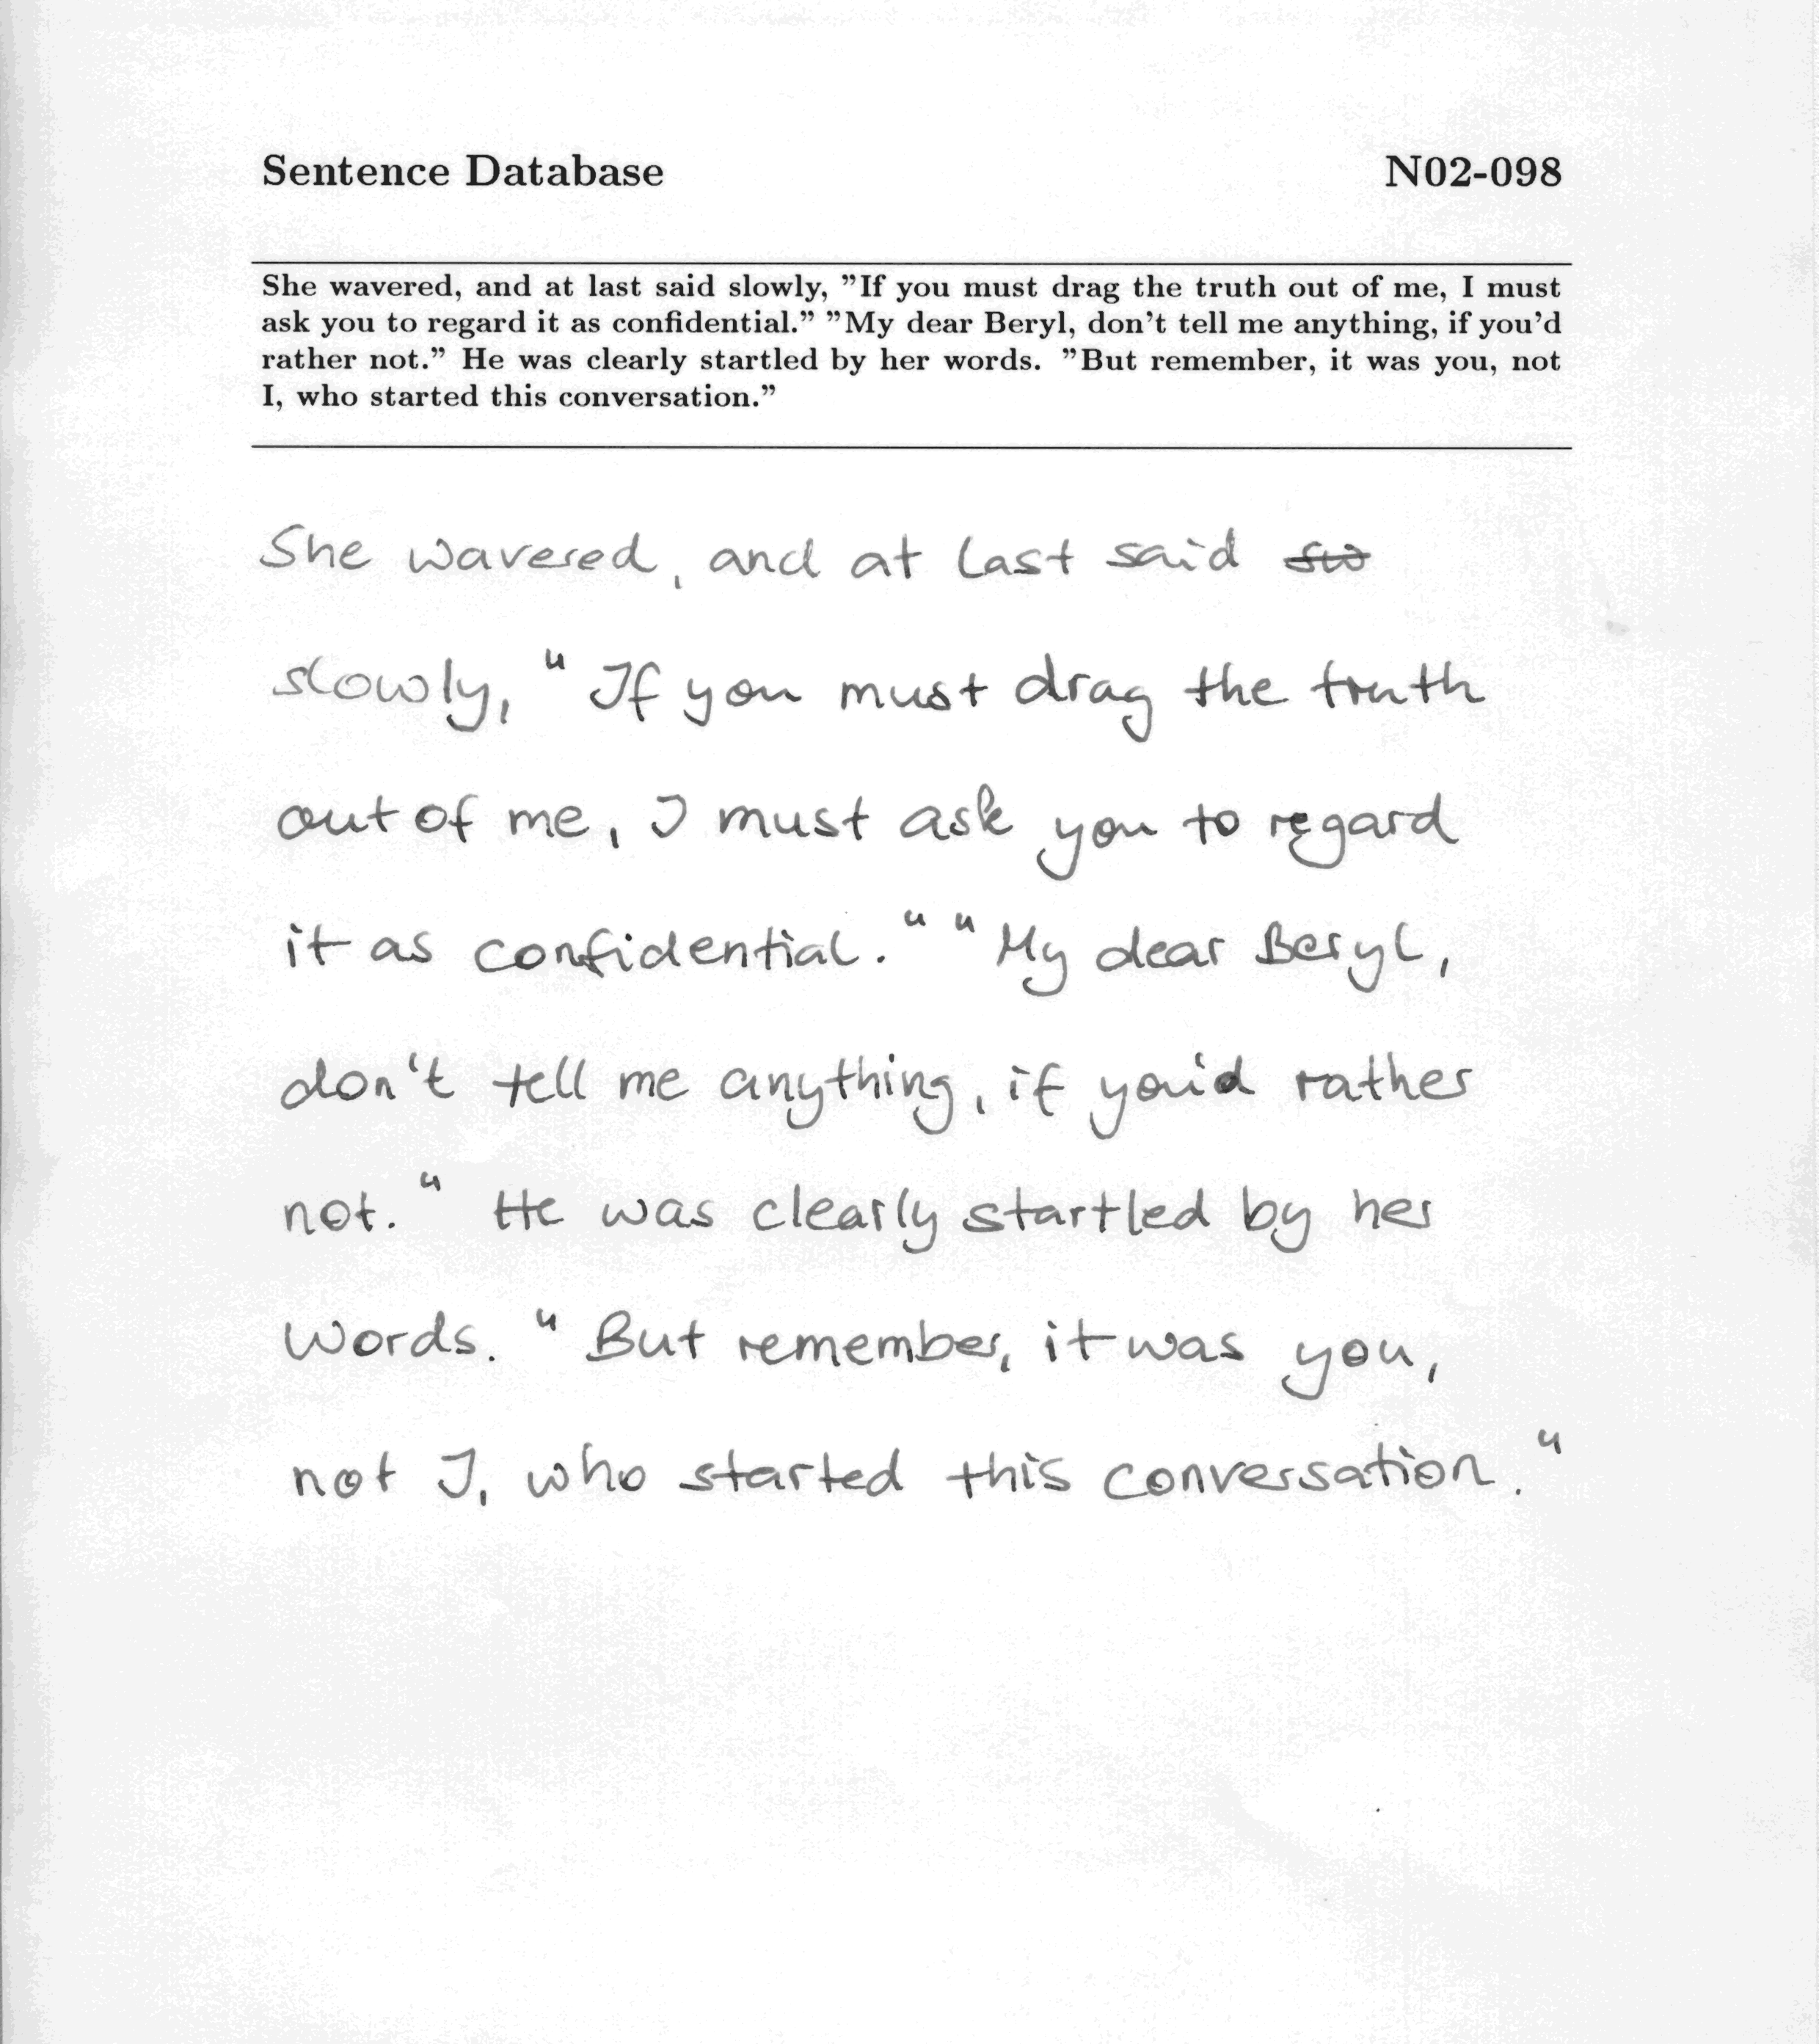 Sentence Database N02-098
She wavered, and at last said slowly, "If you must drag the truth out of me, I must
ask you to regard it as confidential." "My dear Beryl, don't tell me anything, if you'd
rather not." He was clearly startled by her words. "But remember, it was you, not
I, who started this conversation."
She wavered, and at last said
slowly, "If you must drag the truth
out of me, I must ask you to regard
it as confidential." "My dear Beryl,
don't tell me anything, if you'd rather
not." He was clearly startled by her
words. "But remember, it was you,
not I, who started this conversation."